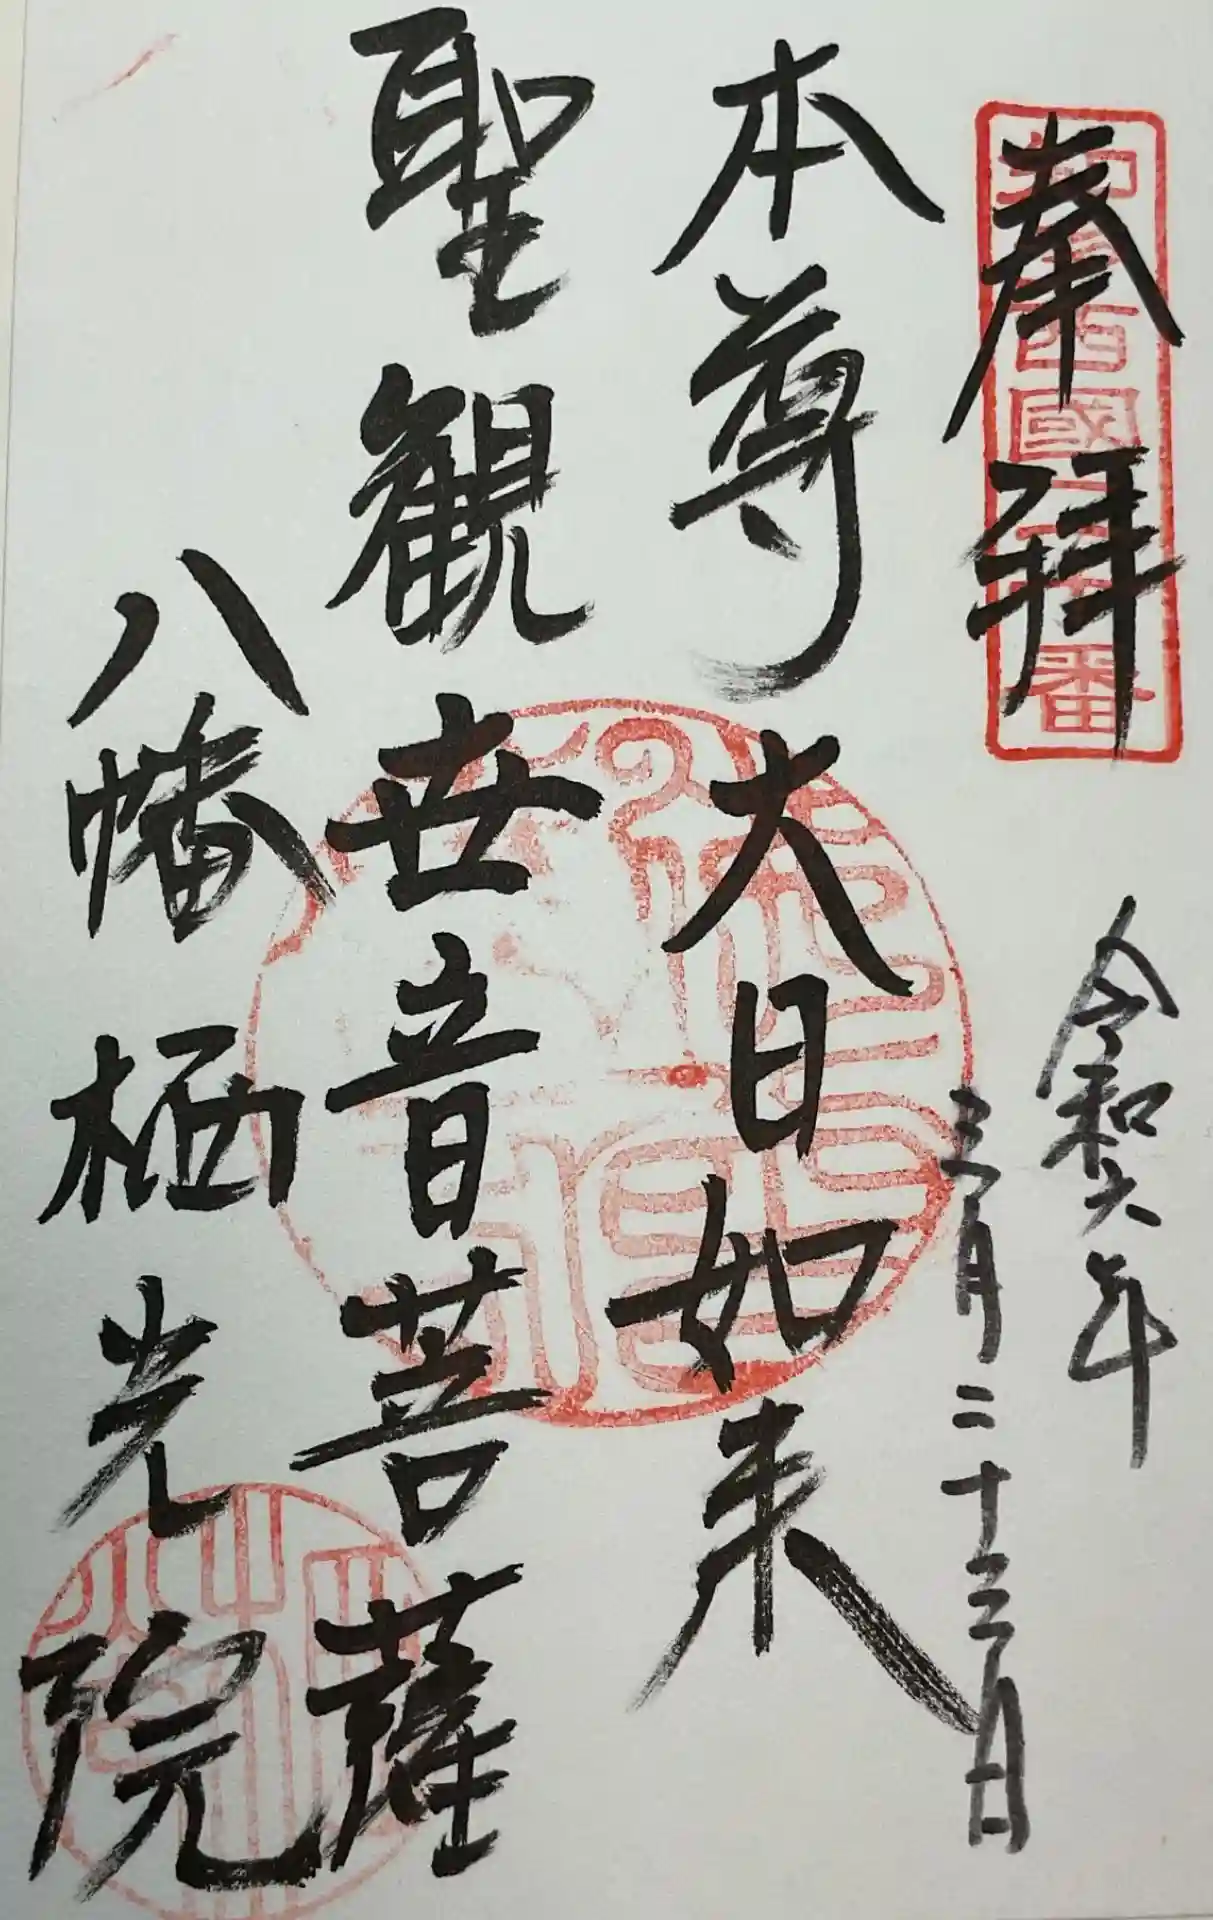 奉拝
令和六年
三月二十三日
本尊大日如来
聖観世音菩薩
八幡栖光院
西國
番